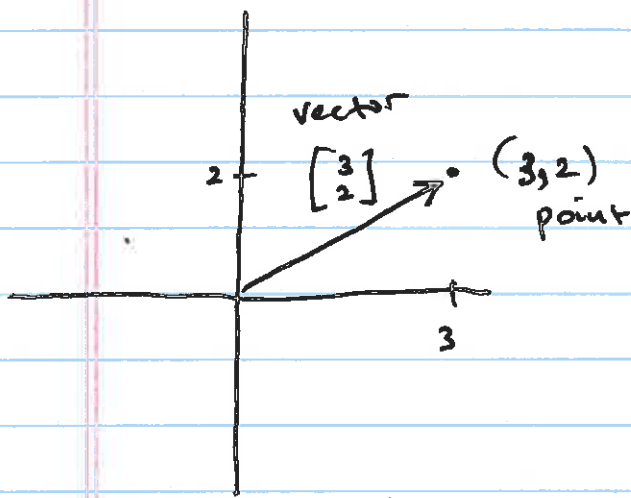 vector
2
[3
2]
(3,2)
point
3